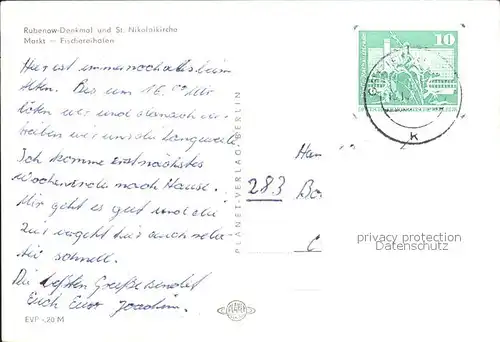 Rubenow-Denkmal und St. Nikolaikirche
Markt — Fischereihafen
Hier ist immer noch alles beim
Alten. Bis um 16.00 Uhr
wir und danach
wir uns die Langeweile.
Ich komme erst nächstes
Wochenende nach Hause.
Mir geht es gut und die
Zeit vergeht hier auch
schnell.
Die besten Grüße sendet
Euch Euer Joachim.
EVP -,20 M
PLANET-VERLAG · BERLIN
PLANET
10
k
283
privacy protection
Datenschutz